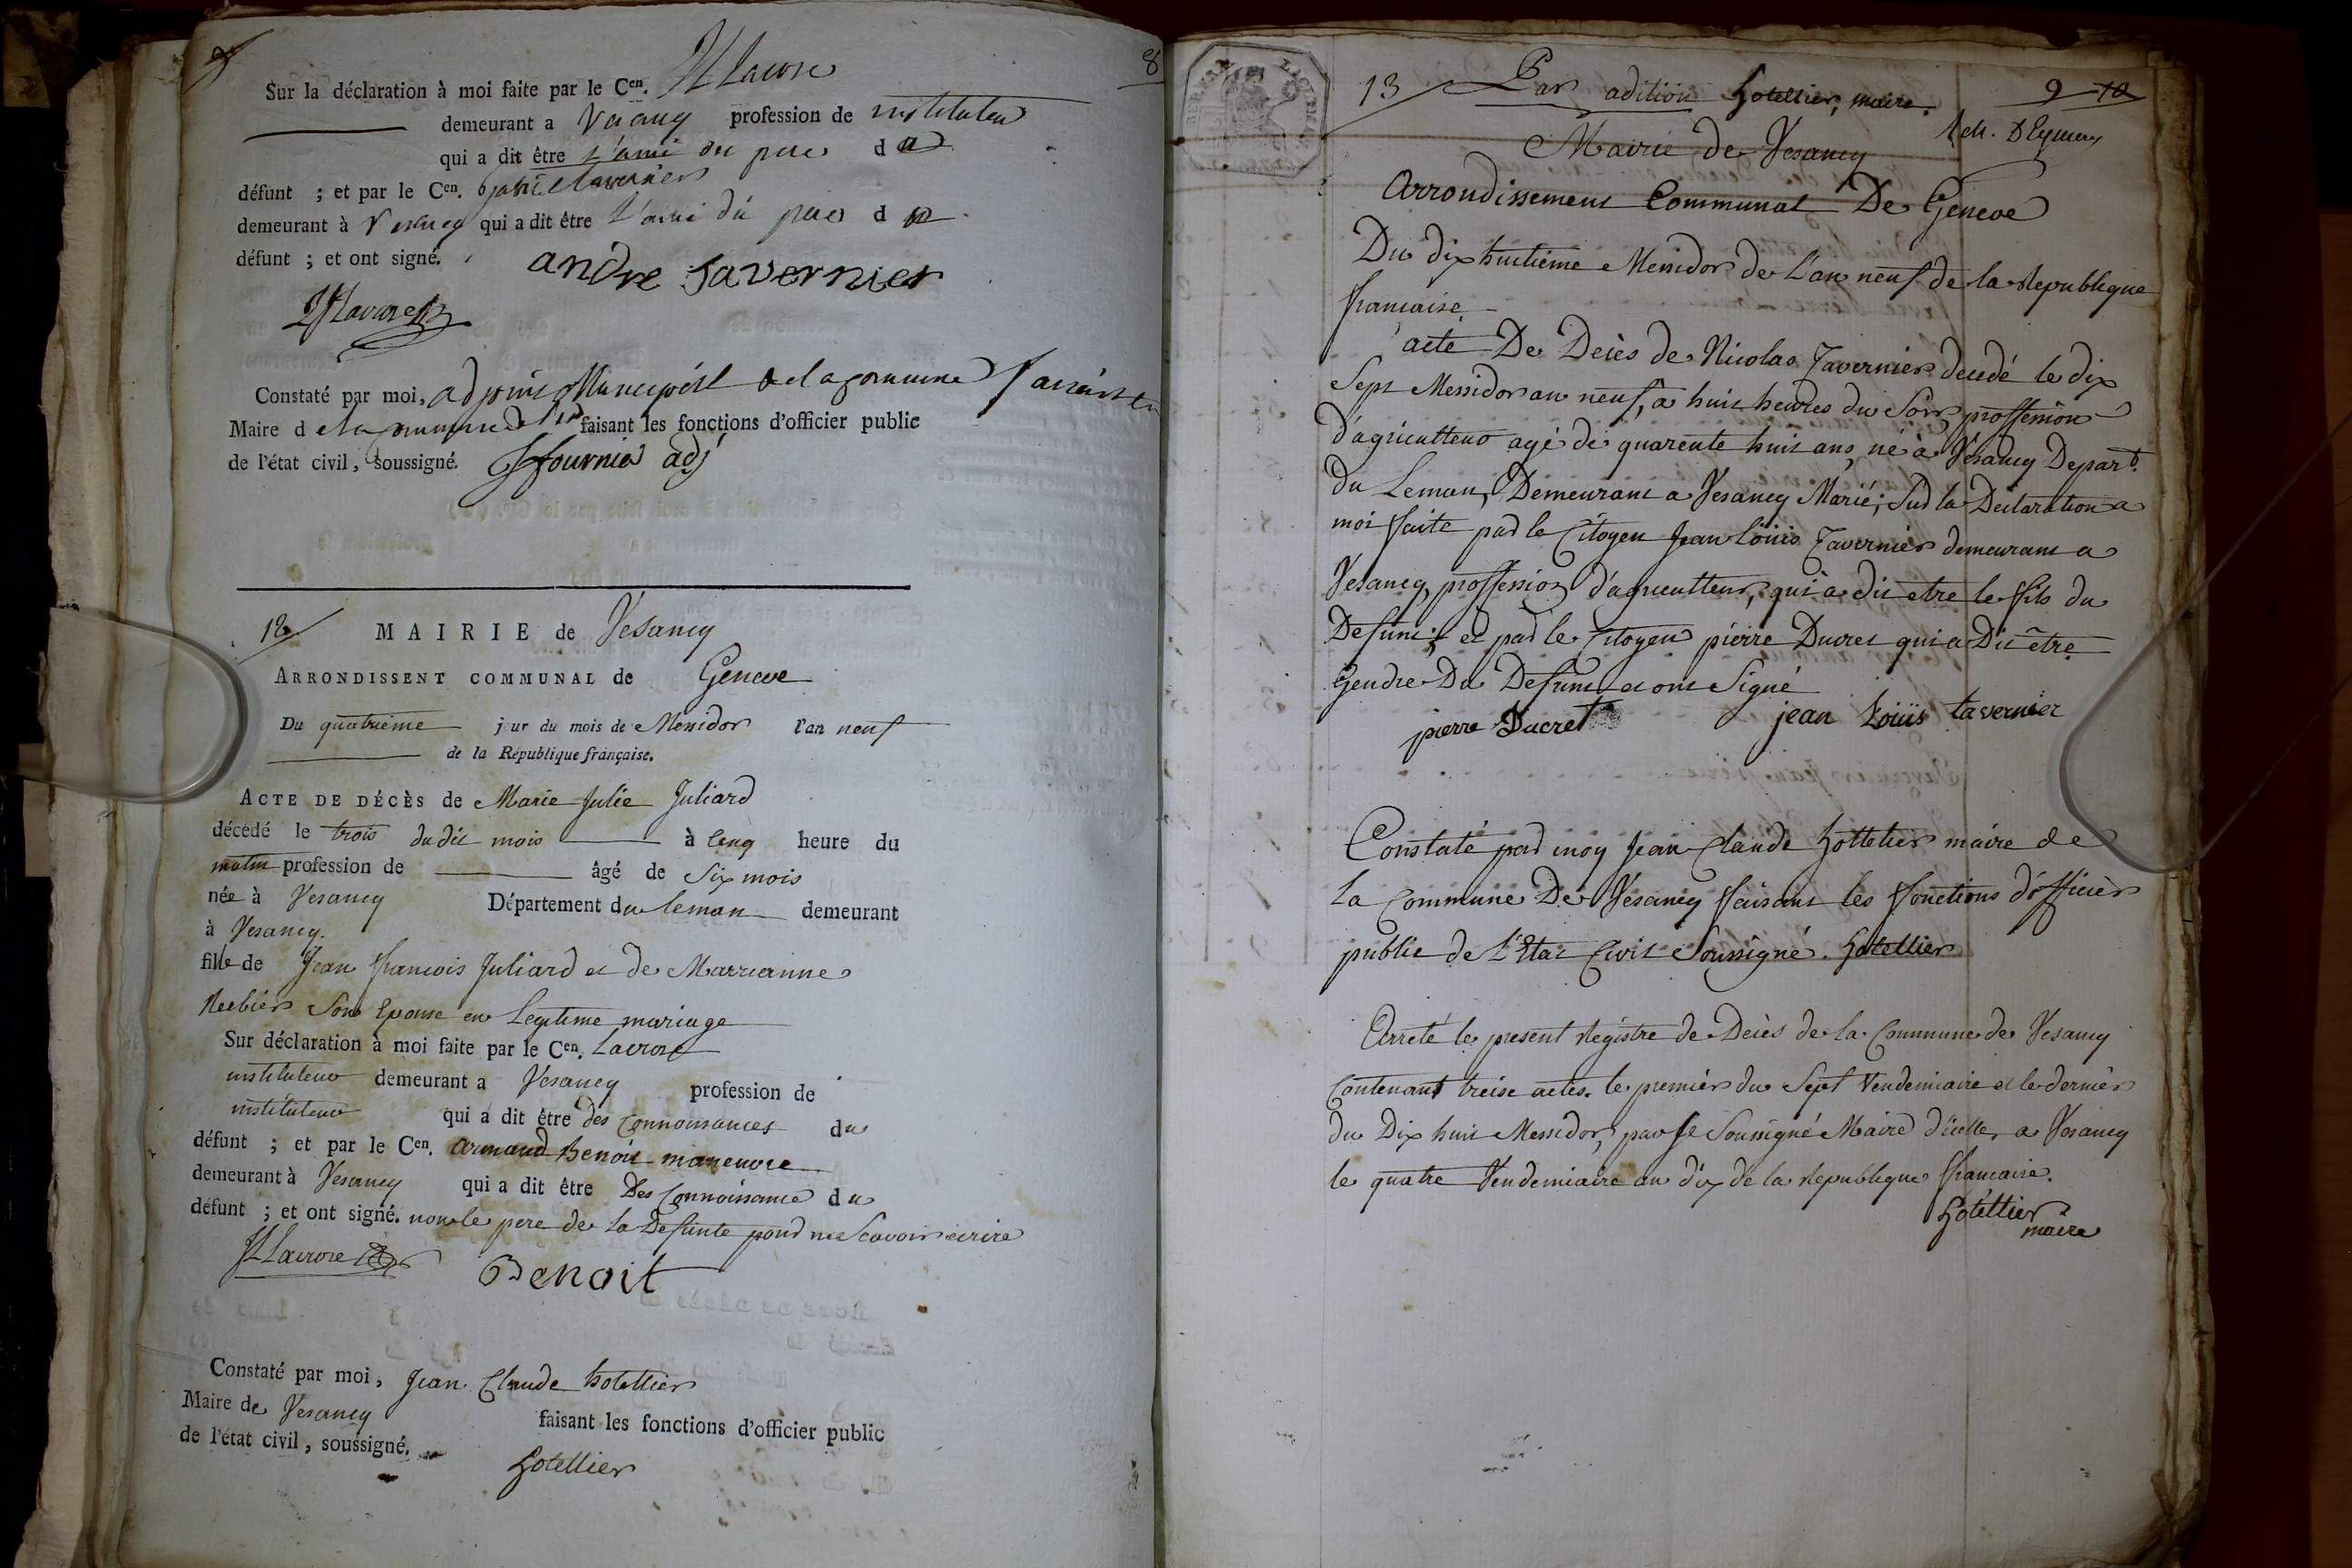 8
Sur la déclaration à moi faite par le Cen.
demeurant a profession de instituteur
qui a dit être l'ami du pere d
défunt ; et par le Cen. tavernier
demeurant à Vesancy qui a dit être l'ami du pere d
défunt ; et ont signé.
andre tavernier
Constaté par moi, adjoint de la commune
Maire d faisant les fonctions d'officier public
de l'état civil, soussigné. fournier adj
12
MAIRIE de Vesancy
ARRONDISSENT COMMUNAL de Geneve
Du quatrieme jour du mois de Messidor l'an neuf
de la République française.
ACTE DE DÉCÈS de Marie Julie Juliard
décédé le trois dudit mois à cinq heure du
matin profession de âgé de six mois
née à Vesancy Département du leman demeurant
à Vesancy.
fille de Jean francois Juliard et de Marrianne
son Epouse en Legitime mariage
Sur déclaration à moi faite par le Cen. Lacrose
instituteur demeurant a Vesancy profession de
instituteur qui a dit être des connoissances du
défunt ; et par le Cen. armand Benoit maneuvre
demeurant à Vesancy qui a dit être Des Connoissance du
défunt ; et ont signé. non le pere de la Defunte pour ne Scavoir ecrire
Lacrose Benoit
Constaté par moi, Jean Claude hotellier
Maire de Vesancy
faisant les fonctions d'officier public
de l'état civil, soussigné.
hotellier
13 Par adition hotellier, maire. 9 10
Mairie de Vesancy
Arrondissement Communal De Geneve
Du dix huitième Messidor de L'an neuf de la Republique
francaise
acte De Deces de Nicolas Tavernier decedé le dix
Sept Messidor an neuf, a huit heures du Soir, proffession
d'agriculteur agé de quarente huit ans, né à Vésancy Depart.
du Leman, Demeurant a Vesancy Marié; Sur la Déclaration a
moi faite par le Citoyen Jean Louis Tavernier demeurant a
Vesancy, proffession d'agriculteur, qui à dit etre le fils du
Defunt; et par le Citoyen pierre Ducret qui a Dit être
Gendre Du Defunt et ont Signé
pierre Ducret jean Loüis tavernier
Constaté par moy Jean Claude hottelier maire de
La Commune De Vésancy faisant les fonctions d'officier
public de l'Etat Civil Soussigné. hotellier
Arreté le present Régistre de Decès de la Commune de Vesancy
Contenant treise actes. le premier du Sept Vendemiaire et le dernier
du Dix huit Messidor, par Je Soussigné Maire d'icelle, a Vesancy
le quatre Vendemiaire an dix de la republique francaise.
hotellier
maire